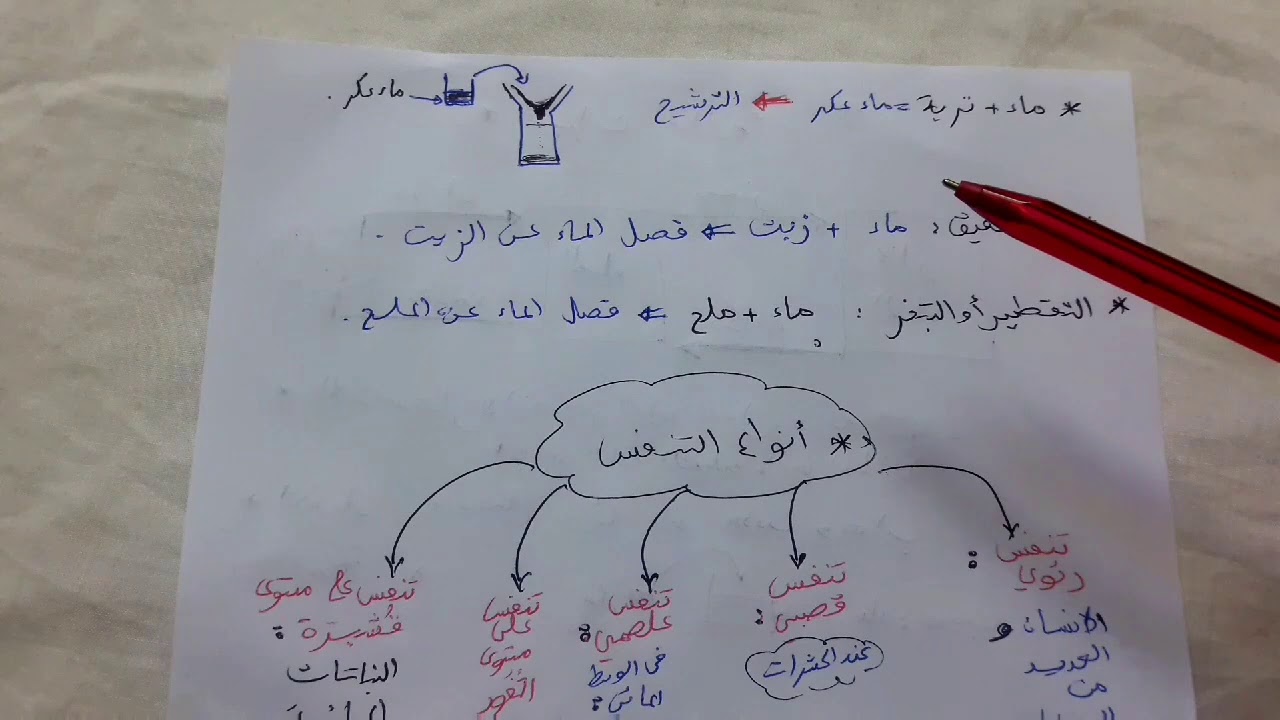 * ماء + تربة = ماء عكر ← الترشيح
ماء عكر.
ماء + زيت ← فصل الماء عن الزيت.
* التقطير أو التبخر: ماء + ملح ← فصل الماء عن الملح.
** أنواع التنفس
تنفس رئوي:
الإنسان و
العديد
من
تنفس
قصبي:
عند الحشرات
تنفس
غلصمي:
في الوسط
المائي:
تنفس
على
مستوى
الثغور
تنفس على مستوى
قشيرة:
النباتات